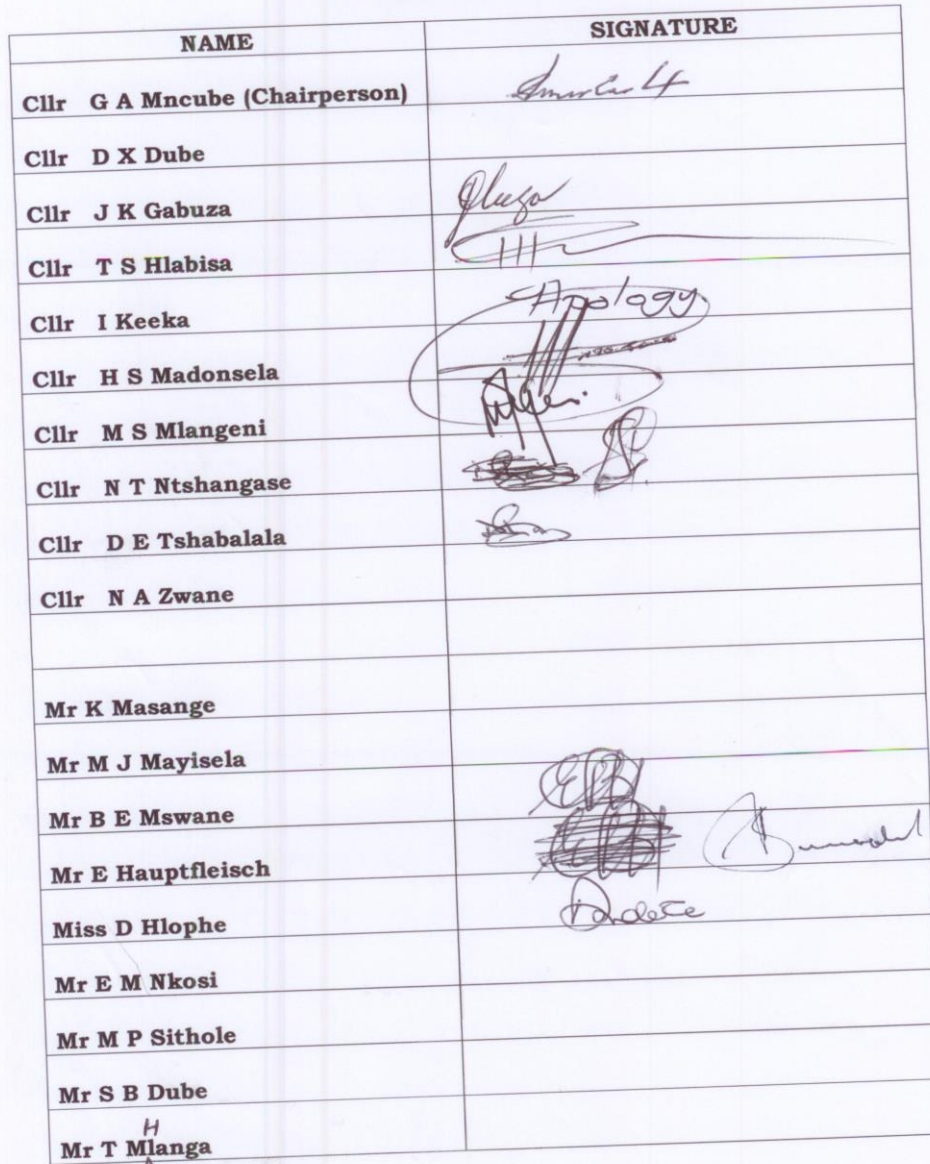 NAME SIGNATURE
Cllr G A Mncube (Chairperson)
Cllr D X Dube
Cllr J K Gabuza
Cllr T S Hlabisa
Cllr I Keeka Apology
Cllr H S Madonsela
Cllr M S Mlangeni
Cllr N T Ntshangase
Cllr D E Tshabalala
Cllr N A Zwane
Mr K Masange
Mr M J Mayisela
Mr B E Mswane
Mr E Hauptfleisch
Miss D Hlophe
Mr E M Nkosi
Mr M P Sithole
Mr S B Dube
H
Mr T Mlanga